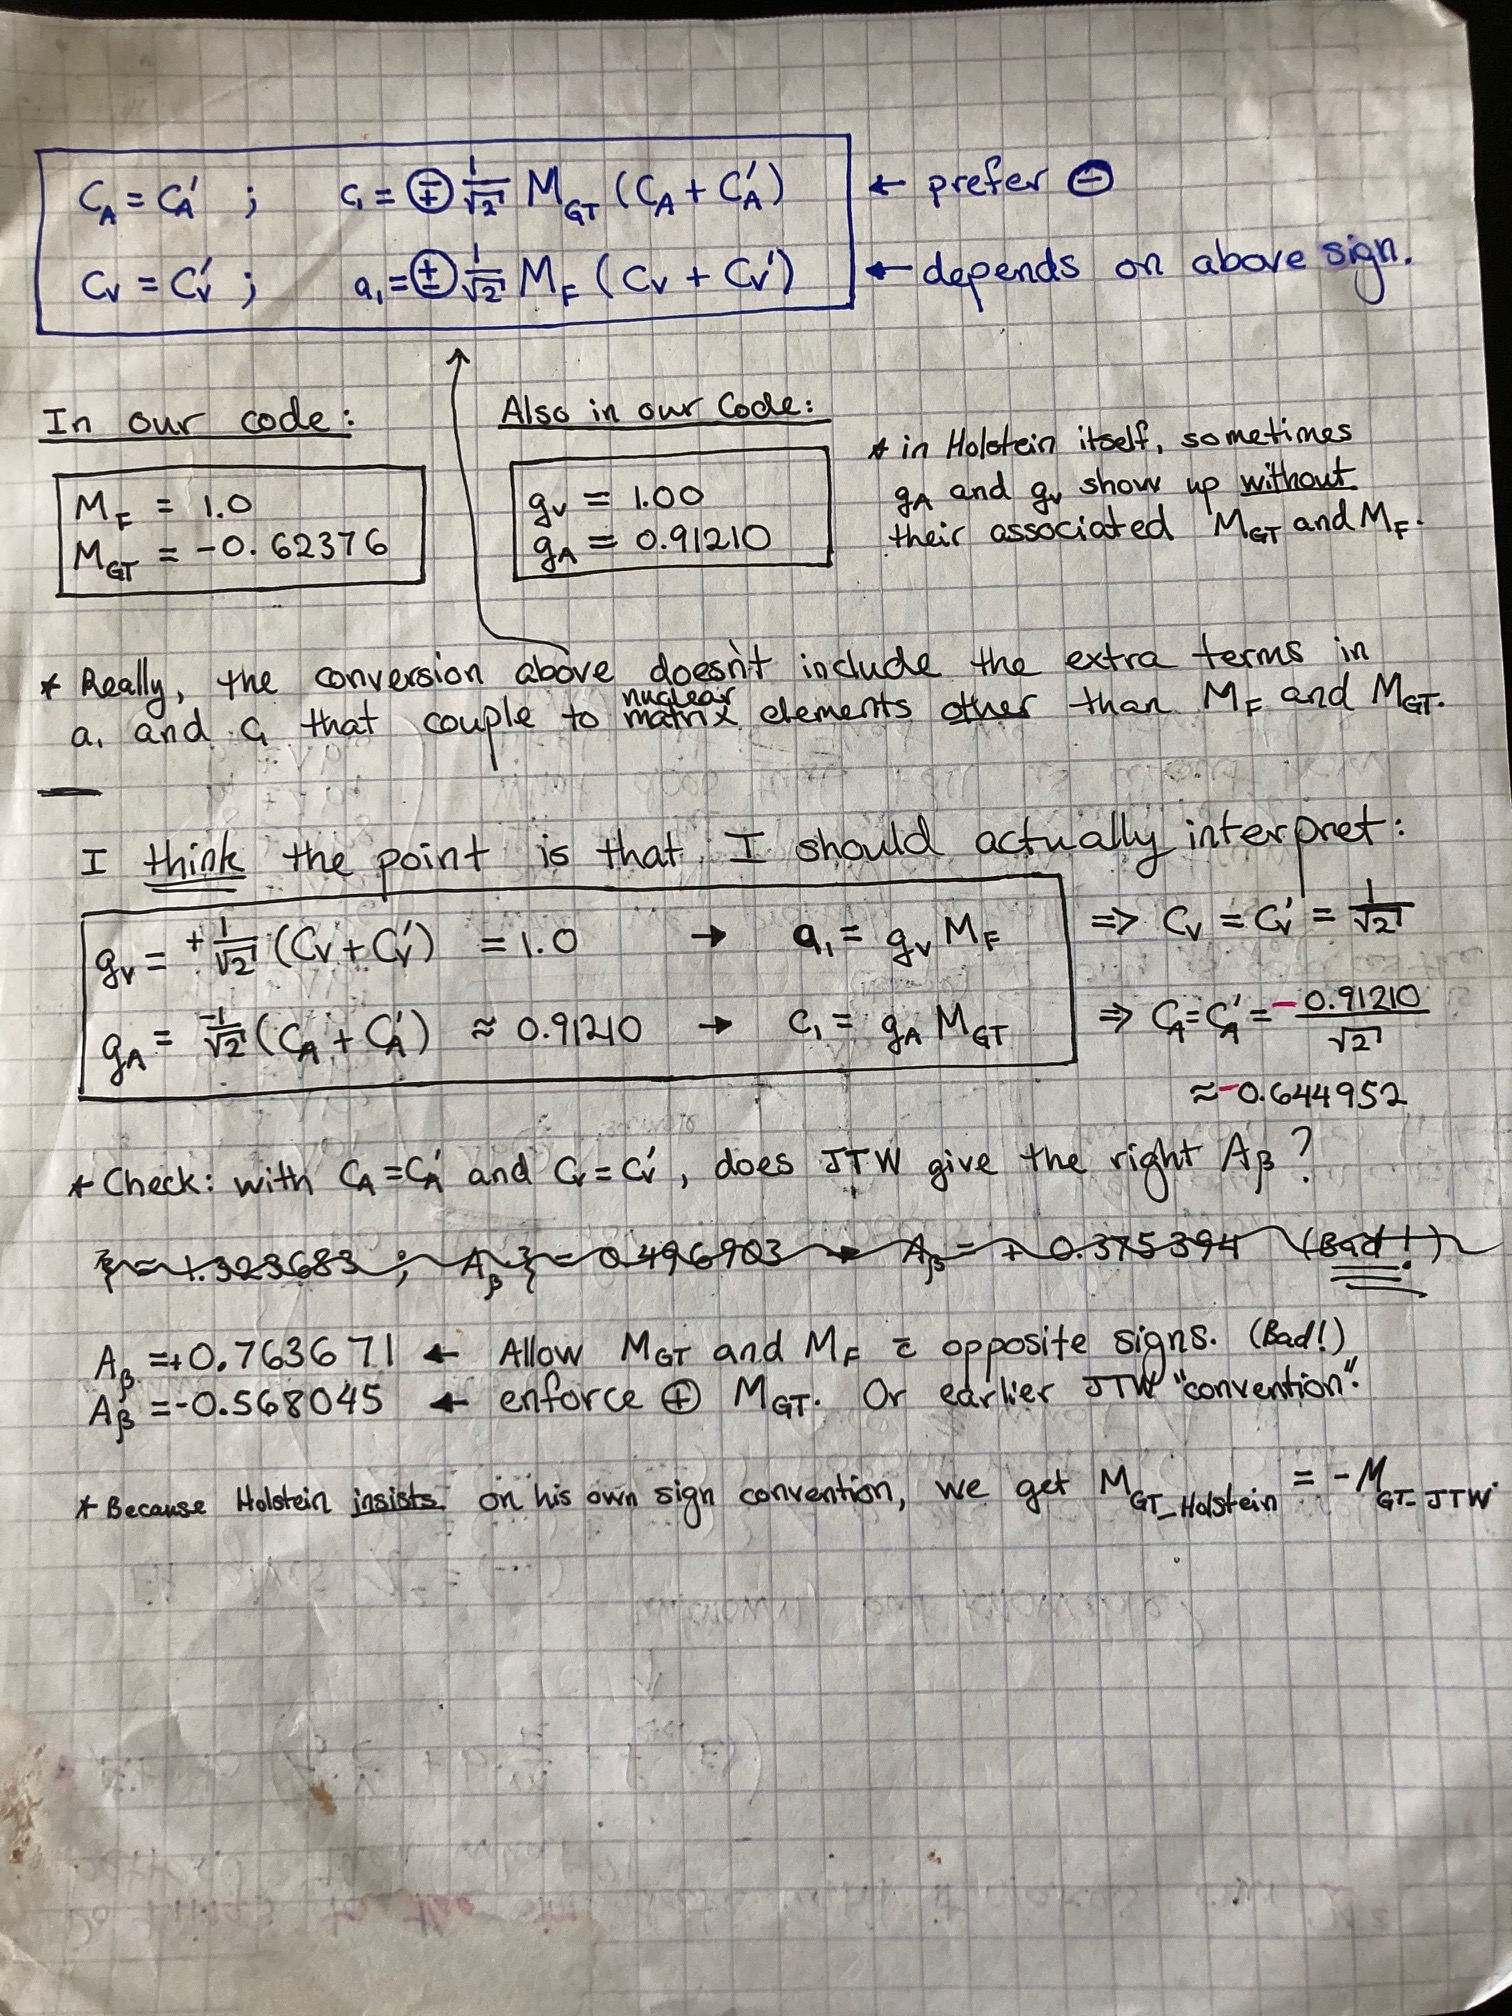 C_A = C_A' ; c_1 = ∓ 1/√2 M_GT (C_A + C_A') ← prefer ⊖
C_V = C_V' ; a_1 = ± 1/√2 M_F (C_V + C_V') ← depends on above sign.
In our code:
M_F = 1.0
M_GT = -0.62376
Also in our Code:
g_V = 1.00
g_A = 0.91210
* in Holstein itself, sometimes
g_A and g_V show up without
their associated M_GT and M_F.
* Really, the conversion above doesn't include the extra terms in
a_1 and c_1 that couple to nuclear matrix elements other than M_F and M_GT.
I think the point is that I should actually interpret:
g_V = +1/√2 (C_V + C_V') = 1.0 → a_1 = g_V M_F ⇒ C_V = C_V' = 1/√2
g_A = -1/√2 (C_A + C_A') ≈ 0.91210 → c_1 = g_A M_GT ⇒ C_A = C_A' = -0.91210/√2
≈ -0.644952
* Check: with C_A = C_A' and C_V = C_V', does JTW give the right A_β?
ξ = 1.323683 ; A_β ξ = 0.496903 → A_β = + 0.375394 (Bad!)
A_β = +0.763671 ← Allow M_GT and M_F c̄ opposite signs. (Bad!)
A_β = -0.568045 ← enforce ⊕ M_GT. Or earlier JTW "convention".
* Because Holstein insists on his own sign convention, we get M_GT_Holstein = -M_GT_JTW.